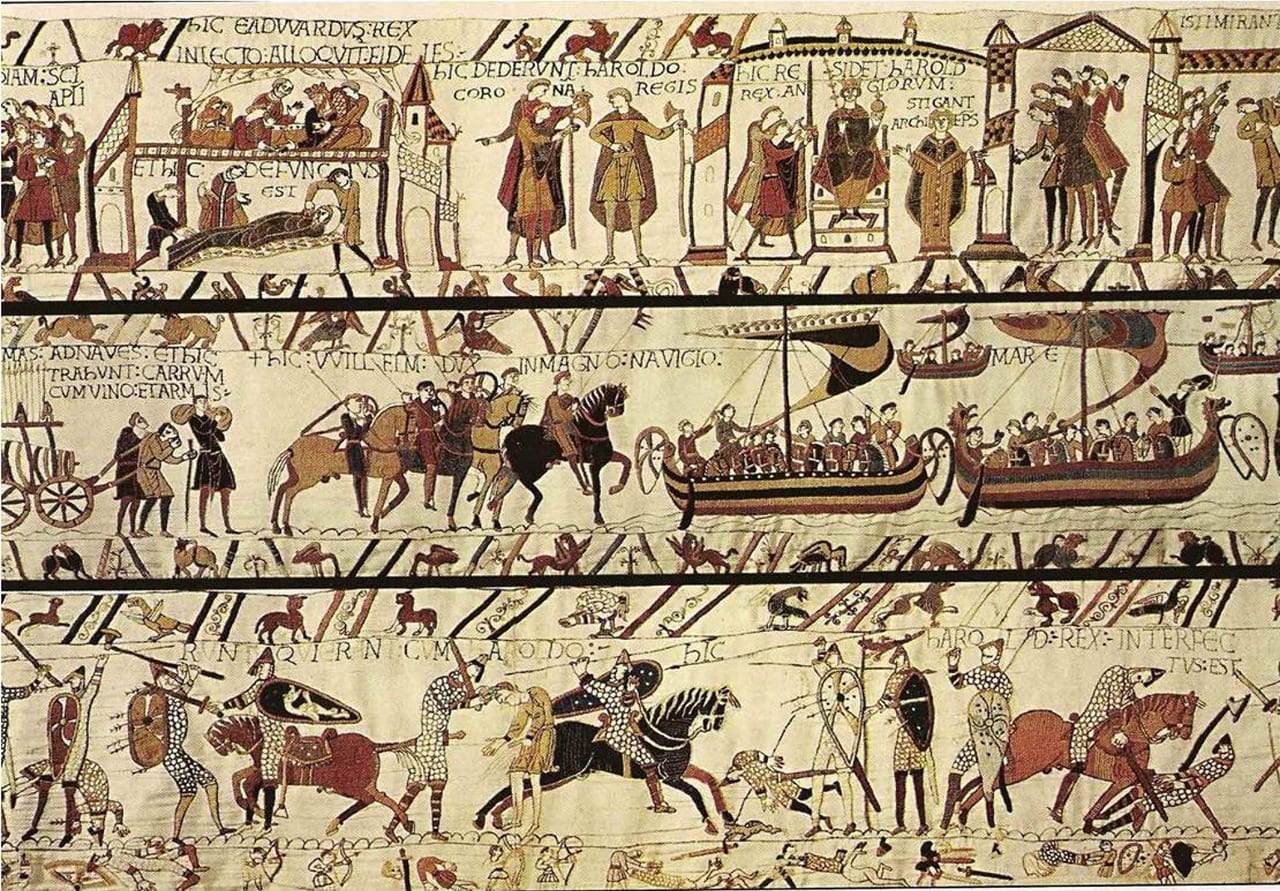 hIC EADVVARDVS: REX
INLECTO: ALLOQVIT: FIDELES:
DIAM: SCI
APLI
ET hIC: DEFVNCTVS
EST
hIC DEDERVNT: hAROLDO:
CORONA REGIS
hIC RESIDET: hAROLD
REX: ANGLORVM:
STIGANT
ARChIEPS
ISTI MIRANT
MAS: ADNAVES: ET hIC
TRAhVNT: CARRVM
CVM VINO: ET ARMIS:
+ hIC: VVILLELM: DVX INMAGNO: NAVIGIO:
MARE
RVNT QVI ERANT CVM hAROLDO:
hIC hAROLD: REX: INTERFEC
TVS: EST